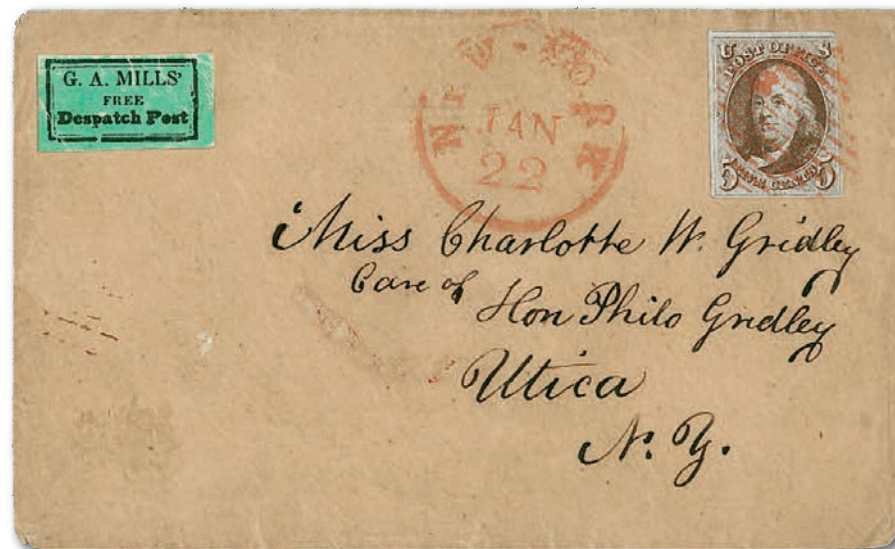 G. A. MILLS'
FREE
Despatch Post
NEW-YORK
JAN
22
U S
POST OFFICE
FIVE CENTS
5 5
Miss Charlotte W. Gridley
Care of
Hon Philo Gridley
Utica
N. Y.